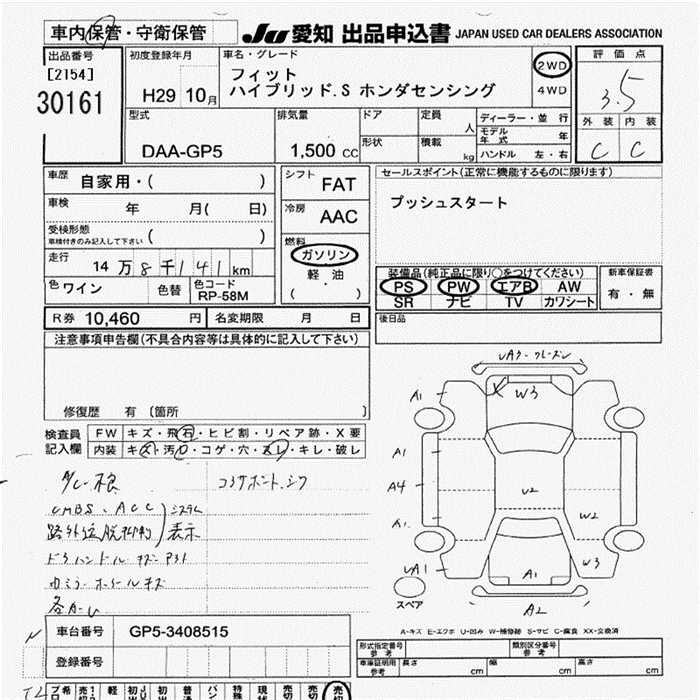 車内保管・守衛保管
JU 愛知 出品申込書 JAPAN USED CAR DEALERS ASSOCIATION
出品番号
[2154]
30161
初度登録年月
H29 10月
車名・グレード
フィット
ハイブリッド.S ホンダセンシング
2WD
4WD
評価点
3.5
外装 内装
C C
型式
DAA-GP5
排気量
1,500 cc
ドア
形状
定員
人
積載
kg
ディーラー・並行
モデル年式 年
ハンドル 左・右
車歴
自家用・( )
車検
年 月( 日)
受検形態
車検付きのみ記入して下さい ( )
走行
14万8千141km
色 ワイン 色替
色コード
RP-58M
シフト
FAT
冷房
AAC
燃料
ガソリン
軽油
( ・ )
セールスポイント(正常に機能するものに限ります)
プッシュスタート
装備品(純正品に限り○をつけてください)
PS PW エアB AW
SR ナビ TV カワシート
新車保証書
有・無
後日品
R券 10,460 円
名変期限 月 日
注意事項申告欄(不具合内容等は具体的に記入して下さい)
修復歴 有 〔箇所 〕
検査員
記入欄
FW キズ・飛石・ヒビ割・リペア跡・X要
内装 キズ・汚れ・コゲ・穴・スレ・キレ・破レ
CMBS、ACC システム
路外逸脱抑制 表示
A1
W3
A1
A4
A1
U2
W2
W3
A1
A2
スペア
A-キズ E-エクボ U-凹み W-補修跡 S-サビ C-腐食 XX-交換済
車台番号
GP5-3408515
登録番号
形式指定番号
参考
類別区分番号
参考
車庫証明用
参考
長さ cm
幅 cm
高さ cm